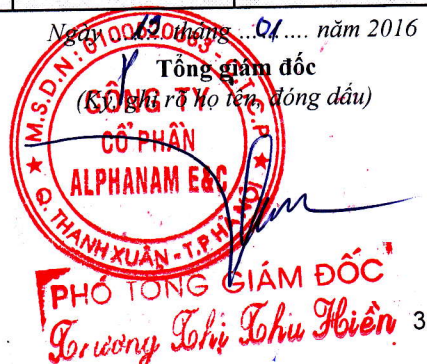 Ngày 12 tháng ...01.... năm 2016
Tổng giám đốc
(Ký, ghi rõ họ tên, đóng dấu)
M.S.D.N: - C.T.C.P
CÔNG TY
CỔ PHẦN
ALPHANAM E&C
Q. THANH XUÂN - T.P HÀ NỘI
PHÓ TỔNG GIÁM ĐỐC
Trương Thị Thu Hiền
3